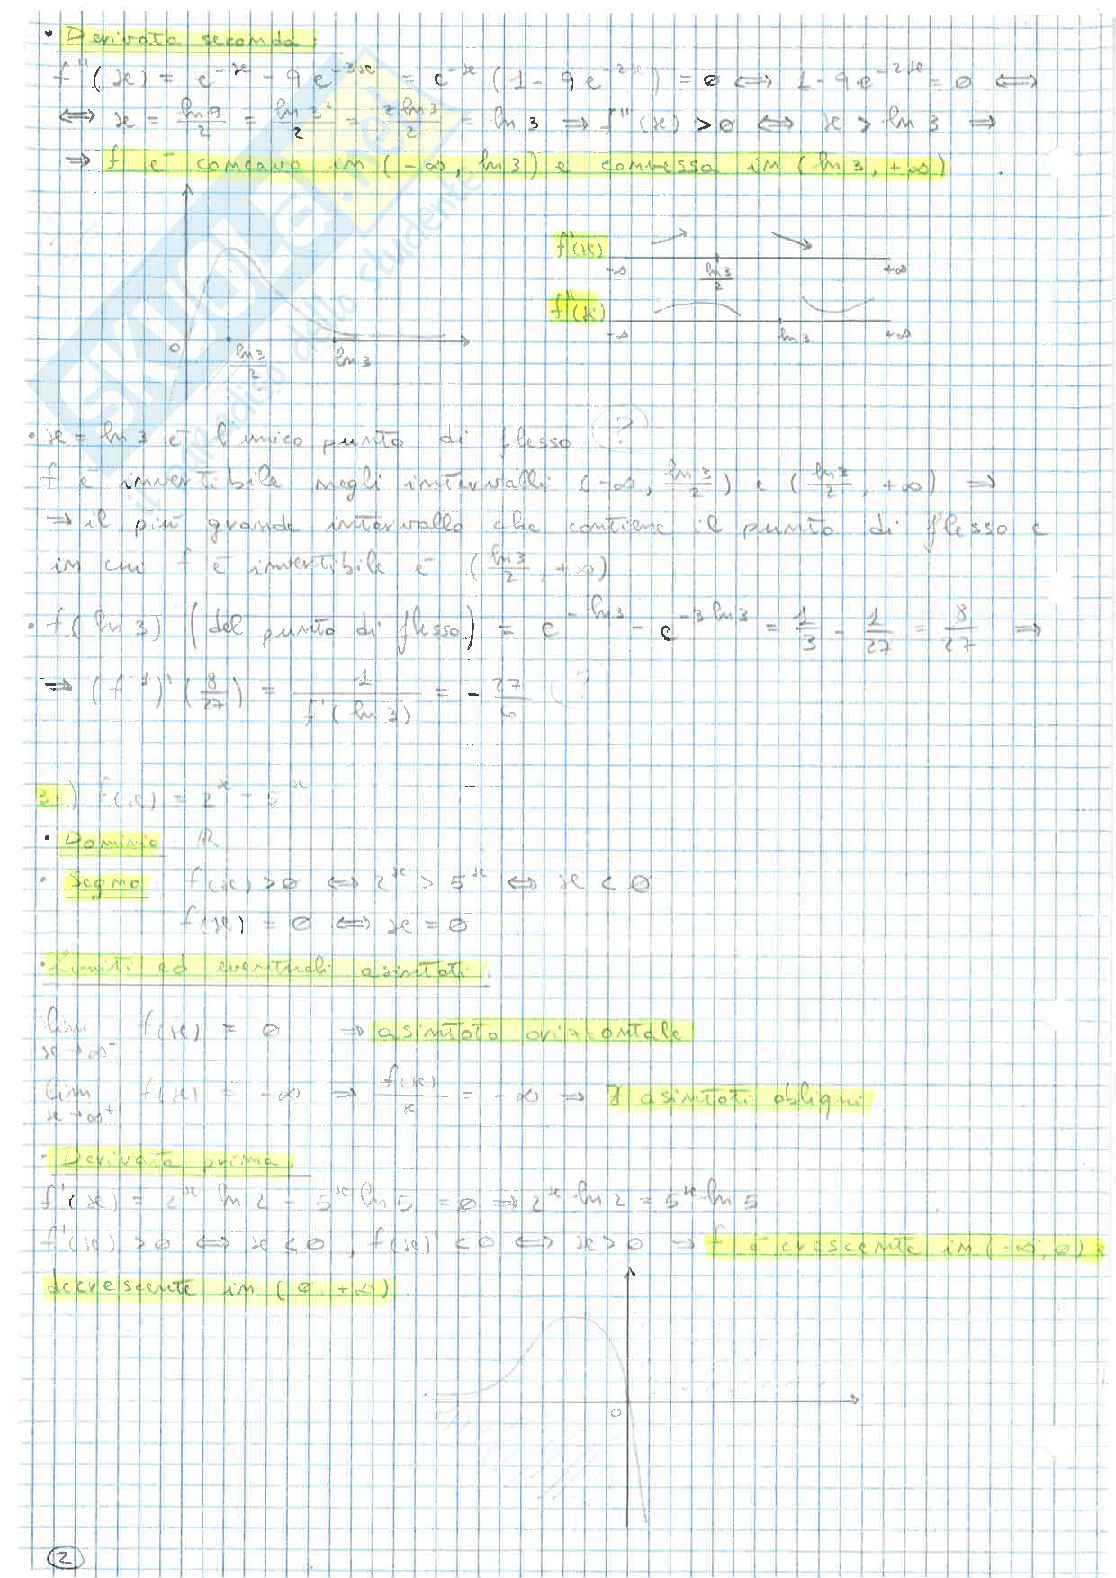 • Derivata seconda:
f''(x) = e^{-x} - 9e^{-3x} = e^{-x}(1 - 9e^{-2x}) = 0 ⟺ 1 - 9e^{-2x} = 0 ⟺
⟺ x = ln9/2 = = 2ln3/2 = ln 3 ⇒ f''(x) > 0 ⟺ x > ln 3 ⇒
⇒ f è concava in (-∞, ln 3) e convessa in (ln 3, +∞).
f'(x)
-∞ ln3/2 +∞
f''(x)
-∞ ln 3 +∞
0 ln3/2 ln 3
• x = ln 3 è l'unico punto di flesso (?)
f è invertibile negli intervalli (-∞, ln3/2) e (ln3/2, +∞) ⇒
⇒ il più grande intervallo che contiene il punto di flesso e
in cui f è invertibile è (ln3/2, +∞)
• f(ln 3) (del punto di flesso) = e^{-ln3} - e^{-3ln3} = 1/3 - 1/27 = 8/27 ⇒
⇒ (f^{-1})'(8/27) = 1/f'(ln 3) = - 27/6 (?)
3.) f(x) = 2^x - 5^x
• Dominio R
• Segno f(x) > 0 ⟺ 2^x > 5^x ⟺ x < 0
f(x) = 0 ⟺ x = 0
• Limiti ed eventuali asintoti.
lim x→∞^- f(x) = 0 ⇒ asintoto orizzontale
lim x→∞^+ f(x) = -∞ ⇒ f(x)/x = -∞ ⇒ ∄ asintoti obliqui
• Derivata prima
f'(x) = 2^x ln 2 - 5^x ln 5 = 0 ⇒ 2^x ln 2 = 5^x ln 5
f'(x) > 0 ⟺ x < 0, f(x) < 0 ⟺ x > 0 ⇒ f è crescente in (-∞, 0) e
decrescente in (0, +∞).
0
2
SKUOLA.net